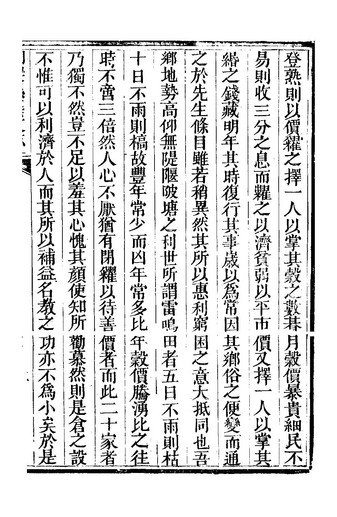 登熟則以價糴之擇一人以掌其穀之數暮月穀價暴貴細民不
易則收三分之息而糶之以濟貧弱以平市價又擇一人以掌其
緡之錢藏明年其時復行其事歲以為常因其鄉俗之便變而通
之於先生條目雖若稍異然其所以惠利窮困之意大抵同也吾
鄉地勢高仰無隄堰陂塘之利世所謂雷鳴田者五日不雨則枯
十日不雨則槁故豐年常少而凶年常多比年穀價騰湧比之往
時不啻三倍然人心不厭猶有閉糶以待善價者而此二十家者
乃獨不然豈不足以羞其心愧其顔使知所勸慕然則是倉之設
不惟可以利濟於人而其所以補益名教之功亦不為小矣於是